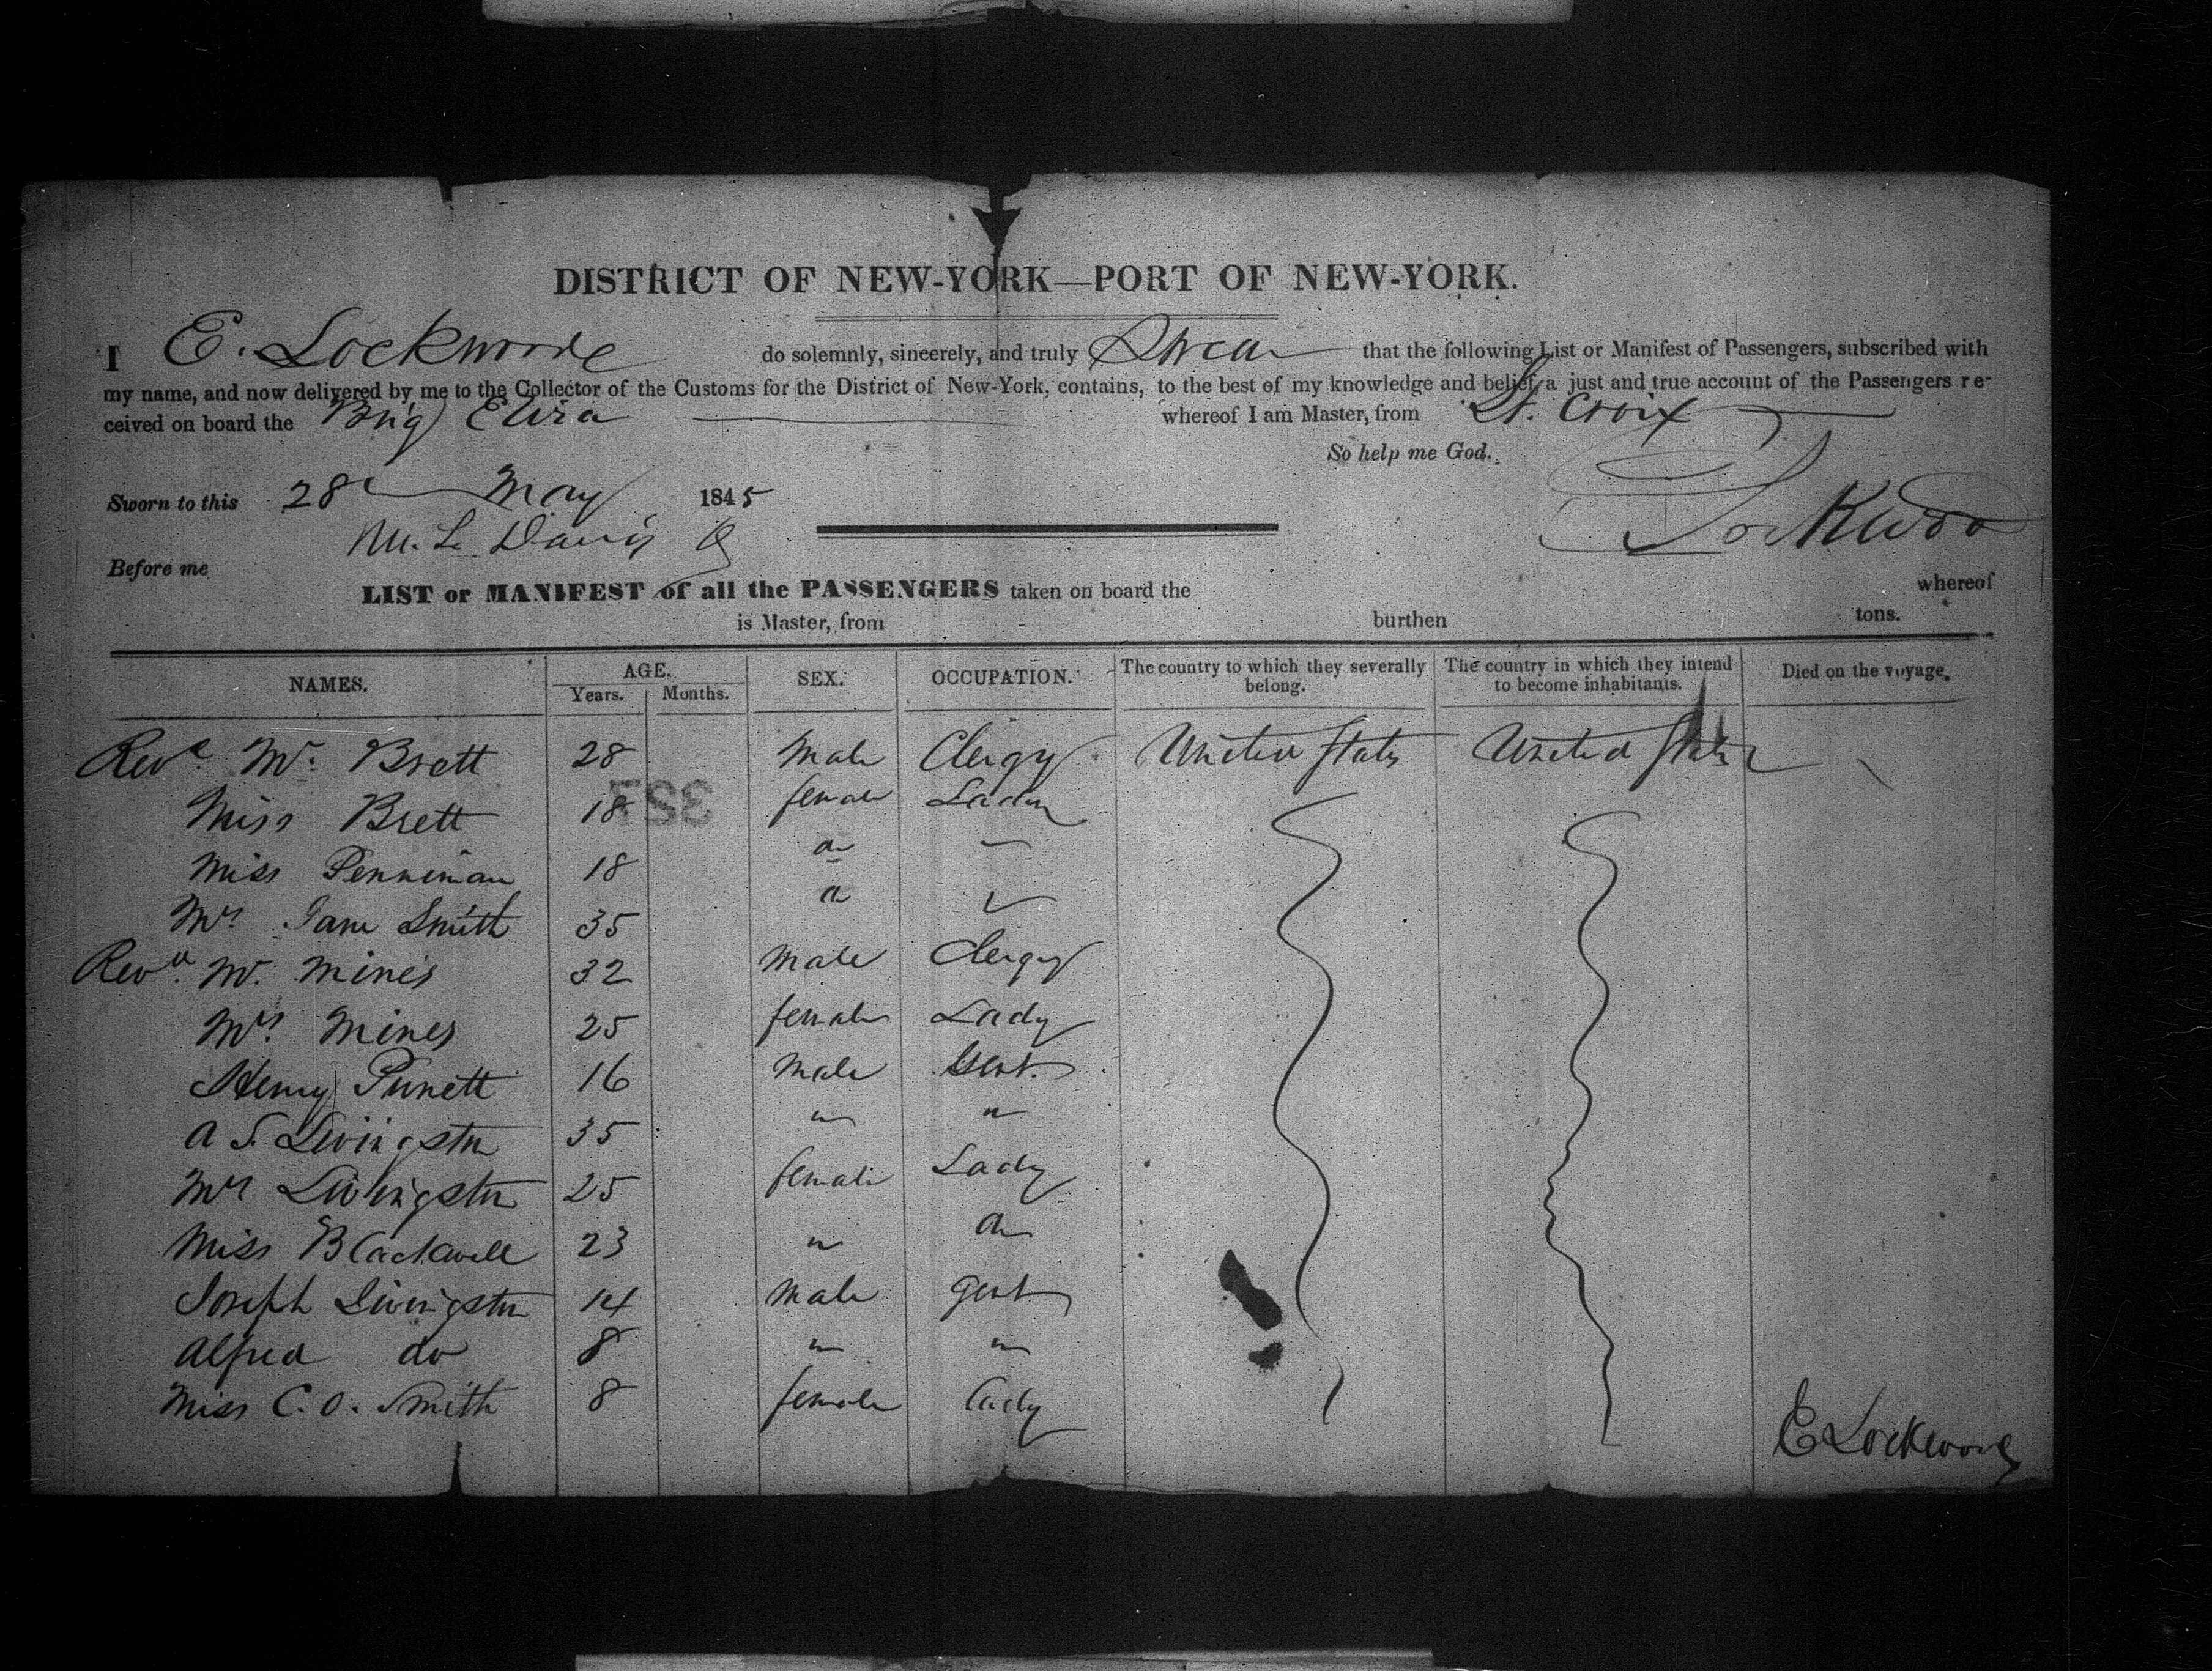 DISTRICT OF NEW-YORK—PORT OF NEW-YORK.
I E. Lockwood do solemnly, sincerely, and truly Swear that the following List or Manifest of Passengers, subscribed with
my name, and now delivered by me to the Collector of the Customs for the District of New-York, contains, to the best of my knowledge and belief, a just and true account of the Passengers re-
ceived on board the Brig Eliza whereof I am Master, from St. Croix
So help me God.
Sworn to this 28 May 1845
Lockwood
M. L. Davis
Before me
LIST or MANIFEST of all the PASSENGERS taken on board the whereof
is Master, from burthen tons.
NAMES. AGE. Years. Months. SEX. OCCUPATION. The country to which they severally belong. The country in which they intend to become inhabitants. Died on the voyage.
Revd. Mr. Brett 28 Male Clergy United States United States
Miss Brett 18 female Lady
Miss Penniman 18 "
Mrs. Jane Smith 35 "
Revd. Mr. Mines 32 Male Clergy
Mrs. Mines 25 female Lady
Henry Punett 16 Male Gent.
A S. Livingston 35 " "
Mrs Livingston 25 female Lady
Miss Blackwell 23 "
Joseph Livingston 14 Male gent
Alfred do 8 " "
Miss C. O. Smith 8 female Lady
E Lockwood